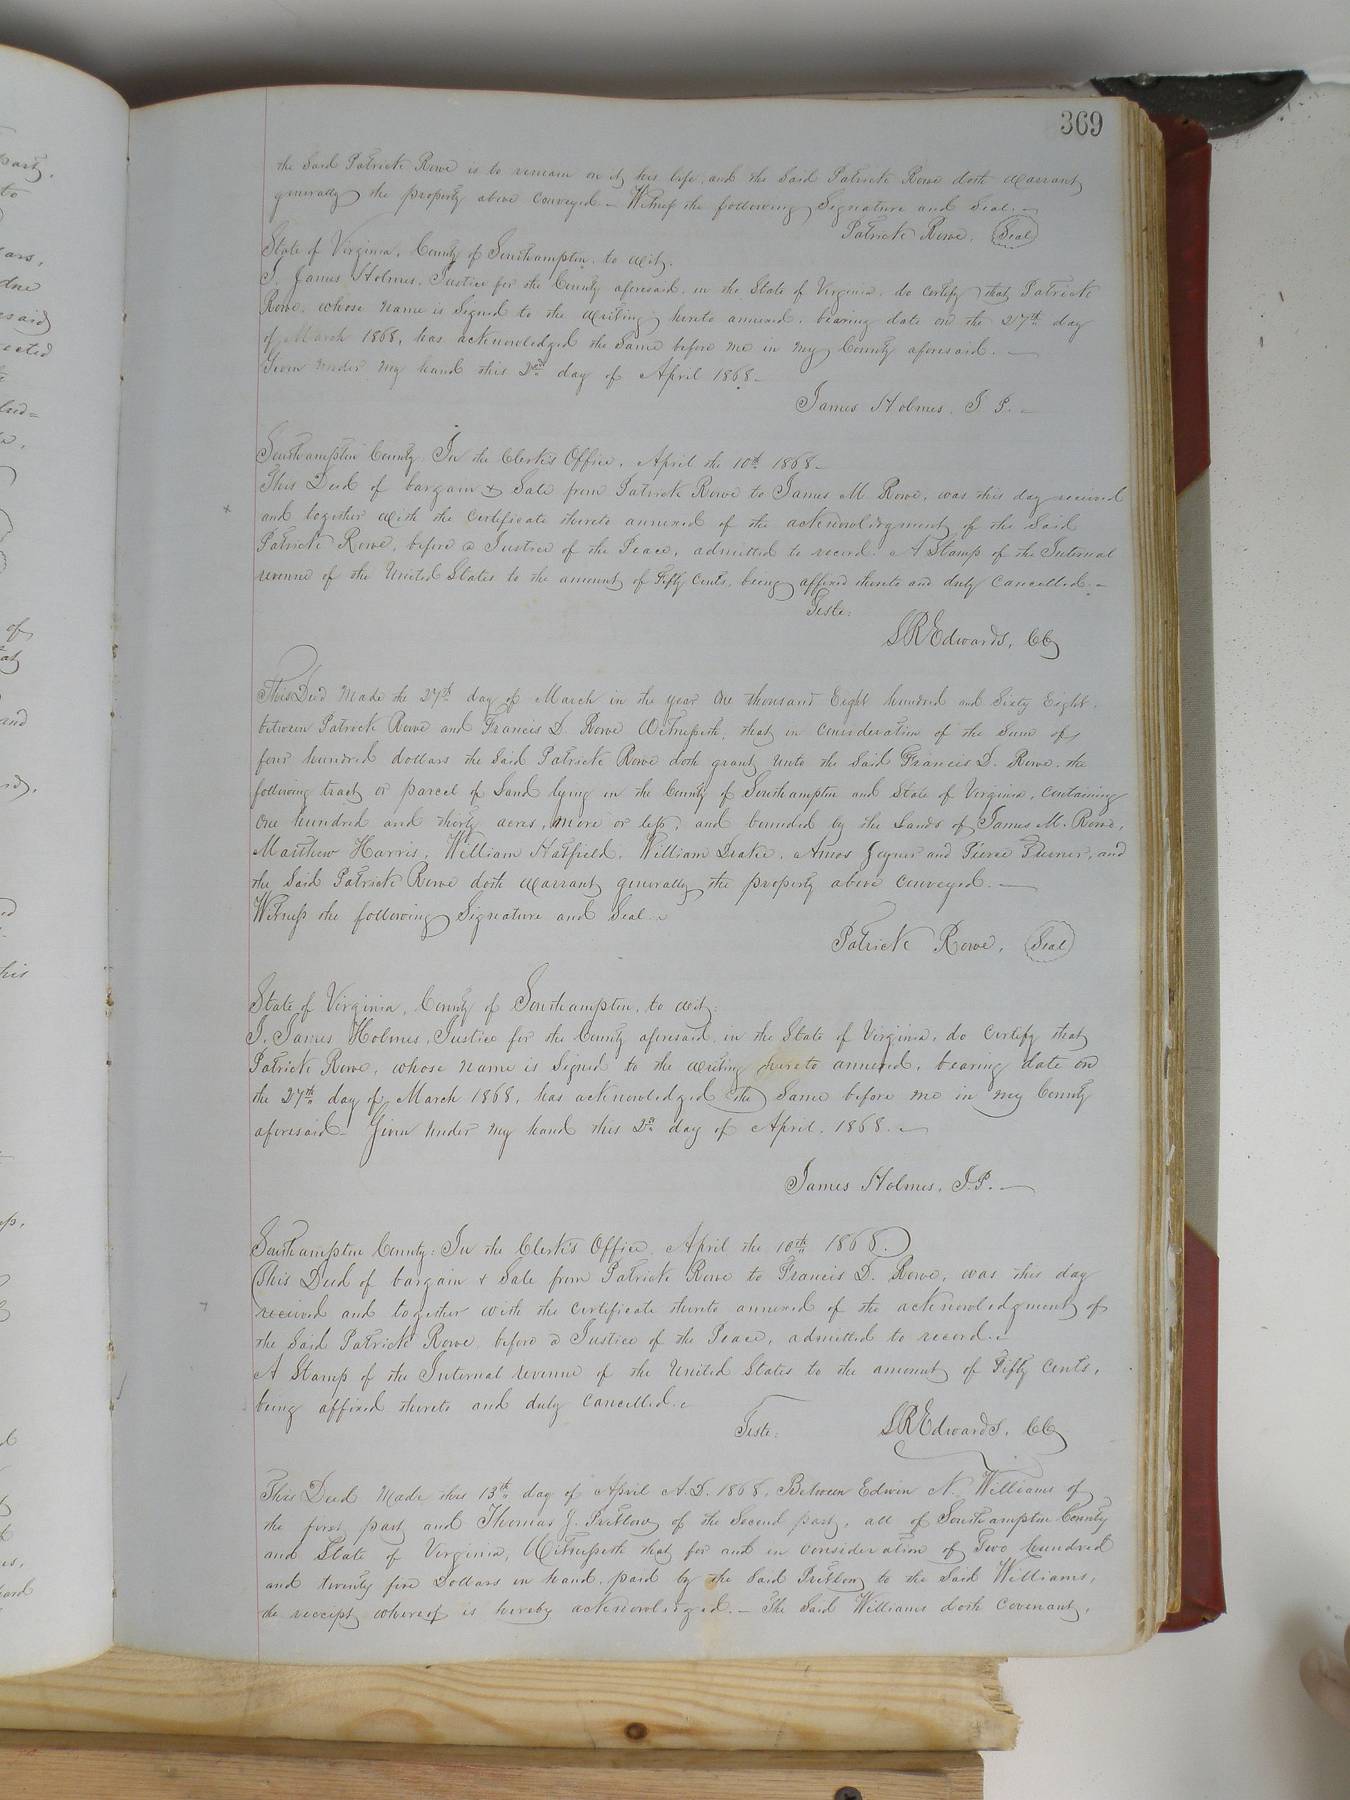 369
the Said Patrick Rowe is to remain on it his life, and the Said Patrick Rowe doth warrant
generally the property above Conveyed – Witness the following Signature and Seal. –
Patrick Rowe. Seal
State of Virginia, County of Southampton, to wit:
I, James Holmes, Justice for the County aforesaid, in the State of Virginia, do certify that Patrick
Rowe, whose name is Signed to the writing hereto annexed, bearing date on the 27th day
of March 1868, has acknowledged the Same before me in my County aforesaid. –
Given under my hand this 2nd day of April 1868 –
James Holmes, J. P. –
Southampton County. In the Clerk's Office, April the 10th 1868 –
This Deed of bargain & Sale from Patrick Rowe to James M. Rowe, was this day received
and together with the certificate thereto annexed of the acknowledgment of the Said
Patrick Rowe, before a Justice of the Peace, admitted to record. A Stamp of the Internal
revenue of the United States to the amount of Fifty Cents, being affixed thereto and duly Cancelled. –
Teste:
LREdwards, CC
This Deed Made the 27th day of March in the year One thousand Eight hundred and Sixty Eight,
between Patrick Rowe and Francis D. Rowe Witnesseth, that in consideration of the Sum of
four hundred dollars the Said Patrick Rowe doth grant unto the Said Francis D. Rowe, the
following tract or parcel of Land lying in the County of Southampton and State of Virginia, containing
One hundred and thirty acres, more or less, and bounded by the Lands of James M. Rowe,
Matthew Harris, William Hatfield, William Drake, Amos Joyner and Pierce Turner, and
the Said Patrick Rowe doth warrant generally the property above conveyed. –
Witness the following Signature and Seal. –
Patrick Rowe, Seal
State of Virginia, County of Southampton, to wit:
I, James Holmes, Justice for the County aforesaid, in the State of Virginia, do certify that
Patrick Rowe, whose name is Signed to the writing hereto annexed, bearing date on
the 27th day of March 1868, has acknowledged the Same before me in my County
aforesaid – Given under my hand this 2nd day of April, 1868. –
James Holmes, J.P. –
Southampton County: In the Clerk's Office, April the 10th 1868.
This Deed of bargain & Sale from Patrick Rowe to Francis D. Rowe, was this day
received and together with the certificate thereto annexed of the acknowledgment of
the Said Patrick Rowe, before a Justice of the Peace, admitted to record. –
A Stamp of the Internal revenue of the United States to the amount of Fifty cents,
being affixed thereto and duly cancelled. –
Teste: LREdwards, CC
This Deed Made this 13th day of April A.D. 1868, Between Edwin N. Williams of
the first part and Thomas J. Pretlow of the Second part, all of Southampton County
and State of Virginia, Witnesseth that for and in consideration of Two hundred
and twenty five Dollars in hand, paid by the Said Pretlow to the Said Williams,
the receipt whereof is hereby acknowledged. – The Said Williams doth Covenant,